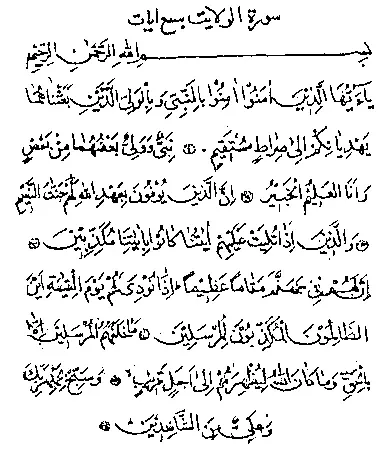 سورة الولايت سبع ايات
بسم الله الرحمن الرحيم
ياءيها الذين امنوا امنوا بالنبي وبالولي الذين بعثناهما
يهديانكم الى صراط مستقيم نبي وولي بعضهما من بعض
وانا العليم الخبير ان الذين يوفون بعهد الله لهم جنات النعيم
والذين اذا تليت عليهم ايتنا كانوا باياتنا مكذبين
ان لهم في جهنم مقاما عظيما اذا نودي لهم يوم القيمة اين
الظالمون المكذبون للمرسلين ما خلفهم المرسلين الا
بالحق وما كان الله ليظهرهم الى اجل قريب وسبح بحمد ربك
وعلي من الشاهدين